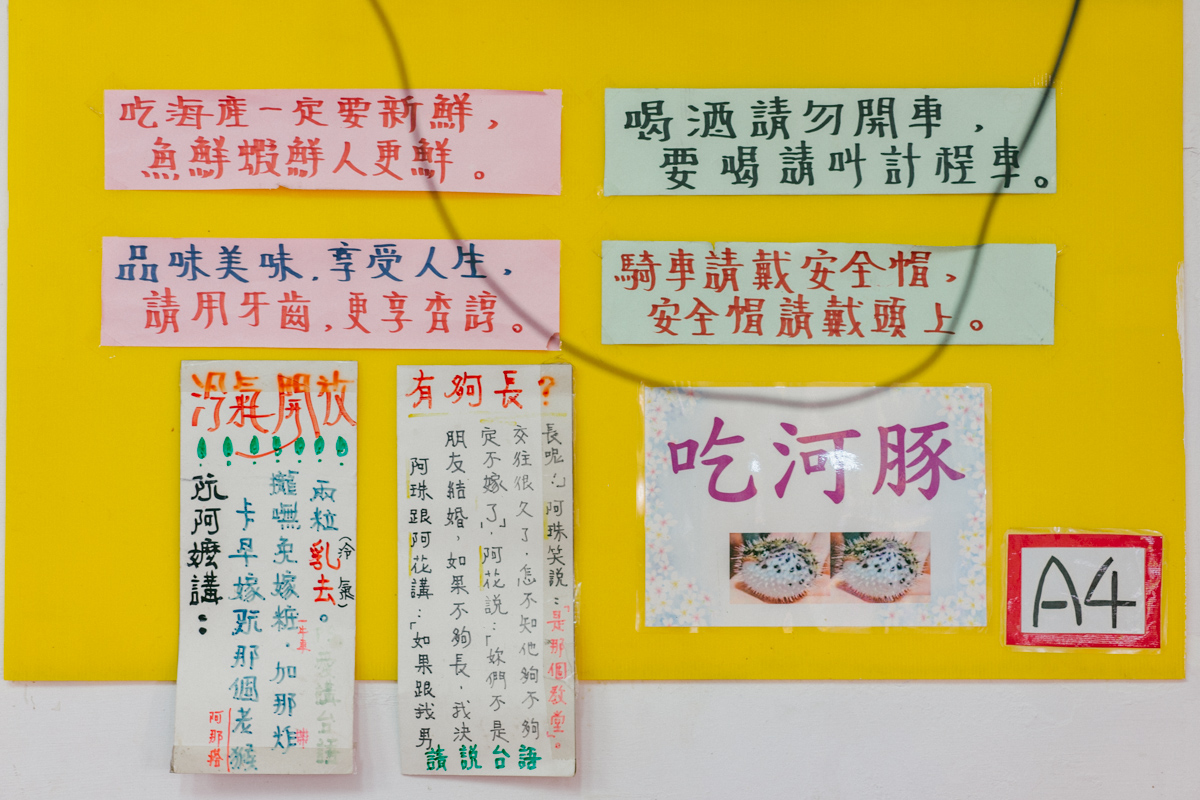 吃海產一定要新鮮,
魚鮮蝦鮮人更鮮。
喝酒請勿開車,
要喝請叫計程車。
品味美味.享受人生,
請用牙齒,更享香諄。
騎車請戴安全帽,
安全帽請戴頭上。
冷氣開放
阮阿嬤講:
卡早嫁阮那個老猴
攏嘸免嫁粧.加那炸
兩粒乳去。
(冷氣)
一牛車
有夠長?
阿珠跟阿花講:「如果跟我男
朋友結婚,如果不夠長,我決
定不嫁了」,阿花說:「妳們不是
交往很久了,怎不知他夠不夠
長呢?」阿珠笑說:「是那個教堂」。
請説台語
吃河豚
A4